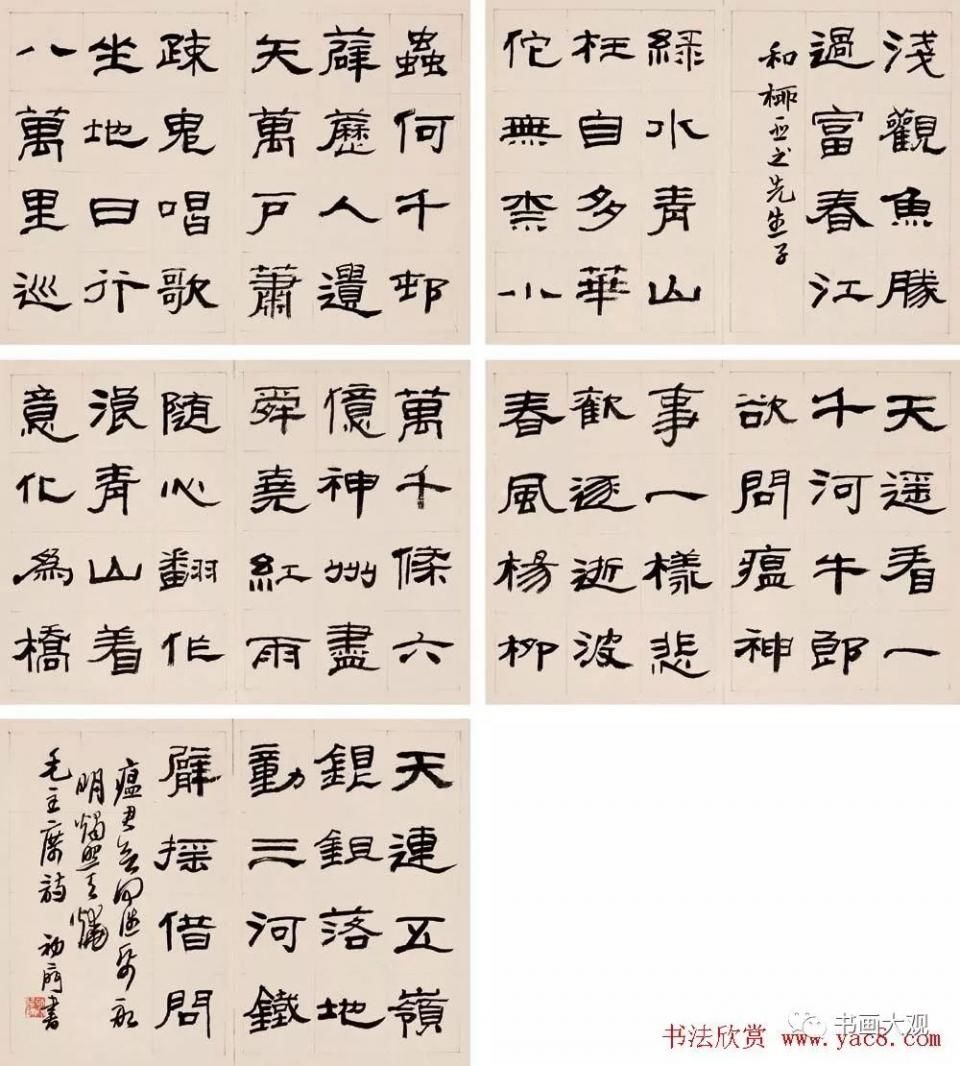 淺觀魚勝
過富春江
和柳亞先生
綠水青山
枉自多華
佗無柰小
蟲何千邨
薜藶人遺
矢萬戶蕭
疎鬼唱歌
坐地日行
八萬里巡
天遥看一
千河牛郎
欲問瘟神
事一樣悲
歡逐逝波
春風楊柳
萬千條六
億神州盡
舜堯紅雨
随心翻作
浪青山着
意化為橋
天連五嶺
銀鉏落地
動三河鐵
臂摇借問
瘟君欲何往紙船
明燭照天燒
毛主席詩 初齋書
书画大观
书法欣赏 www.yac8.com